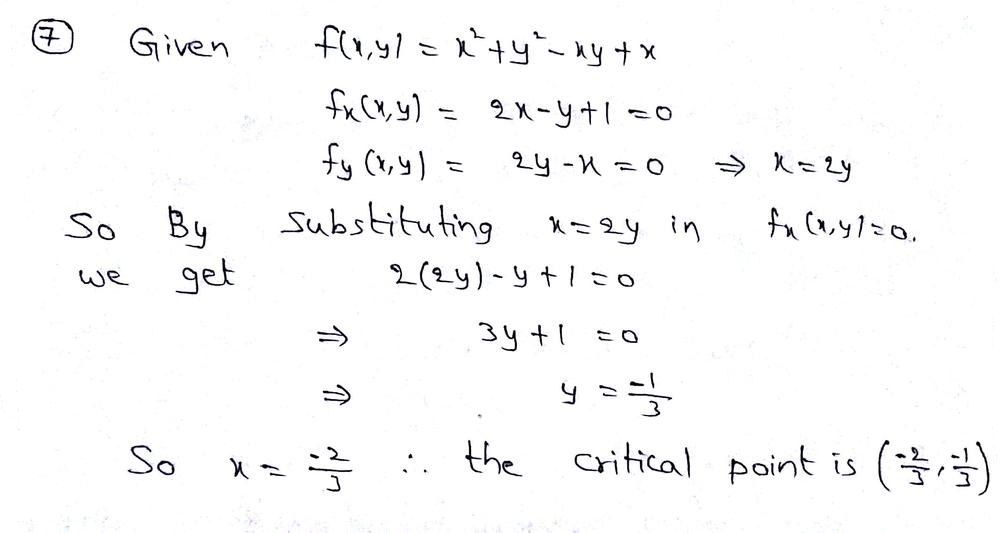 ⑦ Given f(x,y) = x² + y² - xy + x
fx(x,y) = 2x - y + 1 = 0
fy(x,y) = 2y - x = 0 ⇒ x = 2y
So By substituting x = 2y in fx(x,y) = 0.
we get 2(2y) - y + 1 = 0
⇒ 3y + 1 = 0
⇒ y = -1/3
So x = -2/3 ∴ the critical point is (-2/3, -1/3)